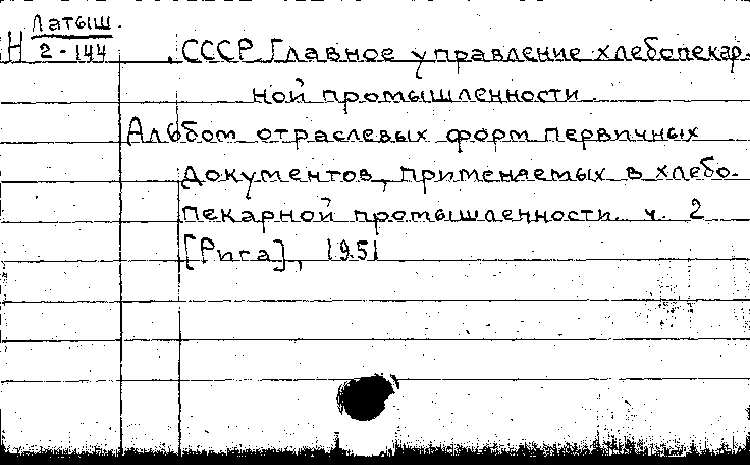 Латыш.
Н 2-144
СССР Главное управление хлебопекар-
ной промышленности.
Альбом отраслевых форм первичных
документов, применяемых в хлебо-
пекарной промышленности. ч. 2
[Рига], 1951